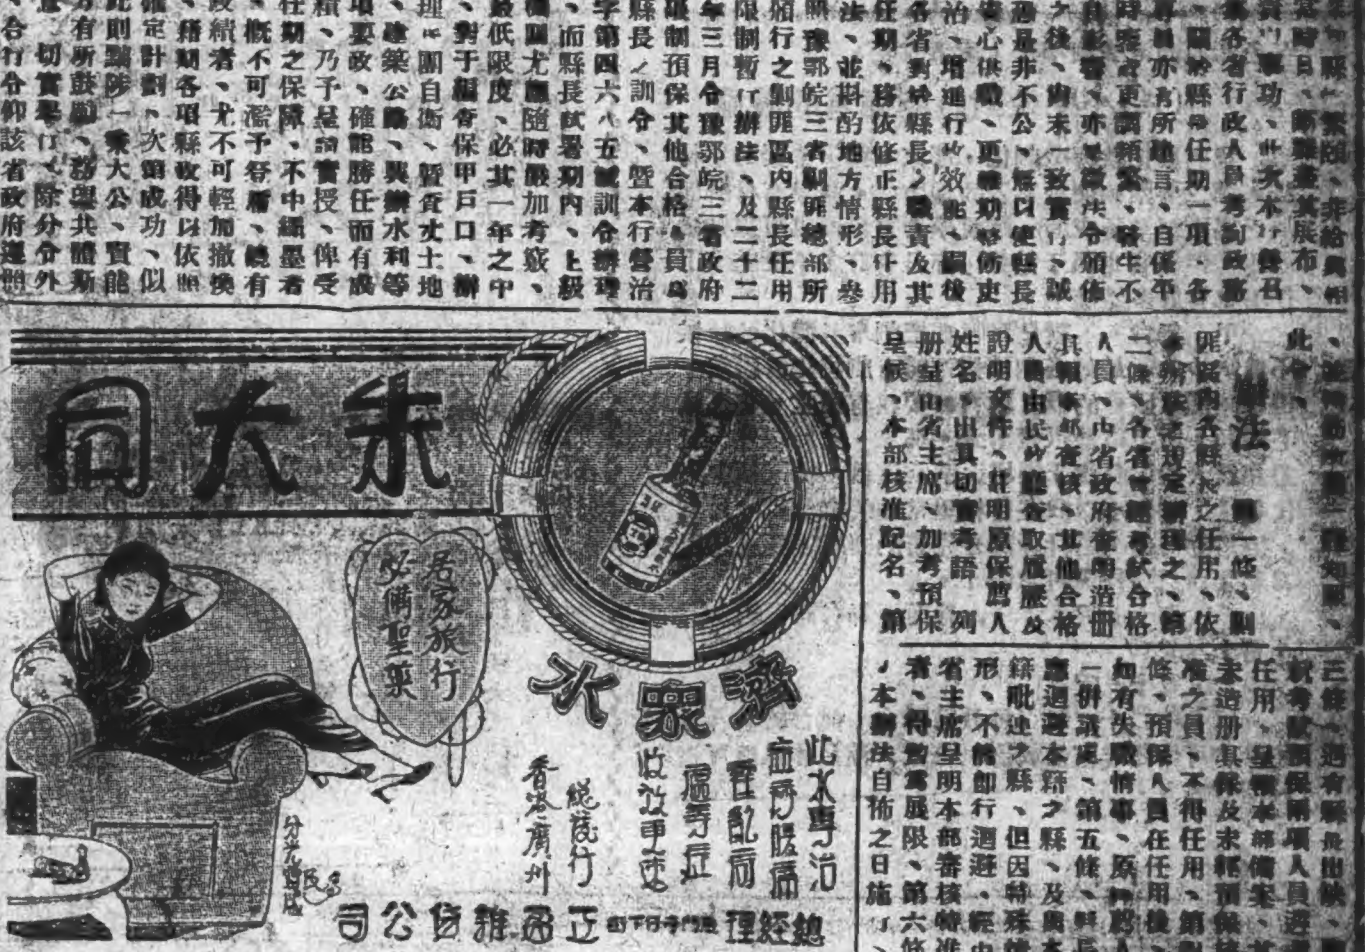 當時日、斷難盡其展布、
責以事功、此次本行營召
集各省行政人員考詢政務
關於縣長任期一項、各
專員亦有所建言、自係年
之後、尚未一致實行、誠
過是非不公、無以使縣長
安心供職、更難期整飭吏
治、增進行政效能、嗣後
各省對於縣長之職責及其
任期、務依修正縣長任用
法、並斟酌地方情形、參
照豫鄂皖三省剿匪總部所
頒行之剿匪區內縣長任用
限制暫行辦法、及二十二
年三月令豫鄂皖三省政府
限制預保其他合格人員為
縣長之訓令、暨本行營治
字第四六八五號訓令辦理
、而縣長試署期內、上級
機關尤應隨時嚴加考察、
最低限度、必其一年之中
、對于編查保甲戶口、辦
理民團自衛、暨查丈土地
、建築公路、興辦水利等
項要政、確能勝任而有成
績、乃予呈請實授、俾受
任期之保障、不中繩墨者
、概不可濫予登庸、饒有
政績者、尤不可輕加撤換
、藉期各項縣政得以依照
確定計劃、次第成功、似
此則黜陟一秉大公、賢能
方有所鼓勵、務望共體斯
意、切實奉行、除分令外
、合行令仰該省政府遵照
此令、
辦法 第一條、剿
匪區內各縣縣長之任用、依
本辦法之規定辦理之、第
二條、各省曾經考試合格
人員、由省政府查明造冊
人員由民政廳查取履歷及
證明文件、註明原保薦人
姓名、出具切實考語、列
冊呈由省主席、加考預保
呈候、本部核准記名、第
三條、遇有縣長出缺、
就考試預保兩項人員選
任用、呈報本部備案、
未造册具保及未經預保
准之員、不得任用、第
條、預保人員在任用後
如有失職情事、原保薦人
一併議處、第五條、縣長
應迴避本籍之縣、及與本
籍毗連之縣、但因特殊情
形、不能即行迴避、經由
省主席呈明本部審核特准
者、得暫寬展限、第六條
、本辦法自佈之日施行、
朱大同
濟眾水
居家旅行
必備聖藥
此水專治
霍亂痧
瘟等症
收效更速
總發行
香港廣州
總經理
正通雜貨公司